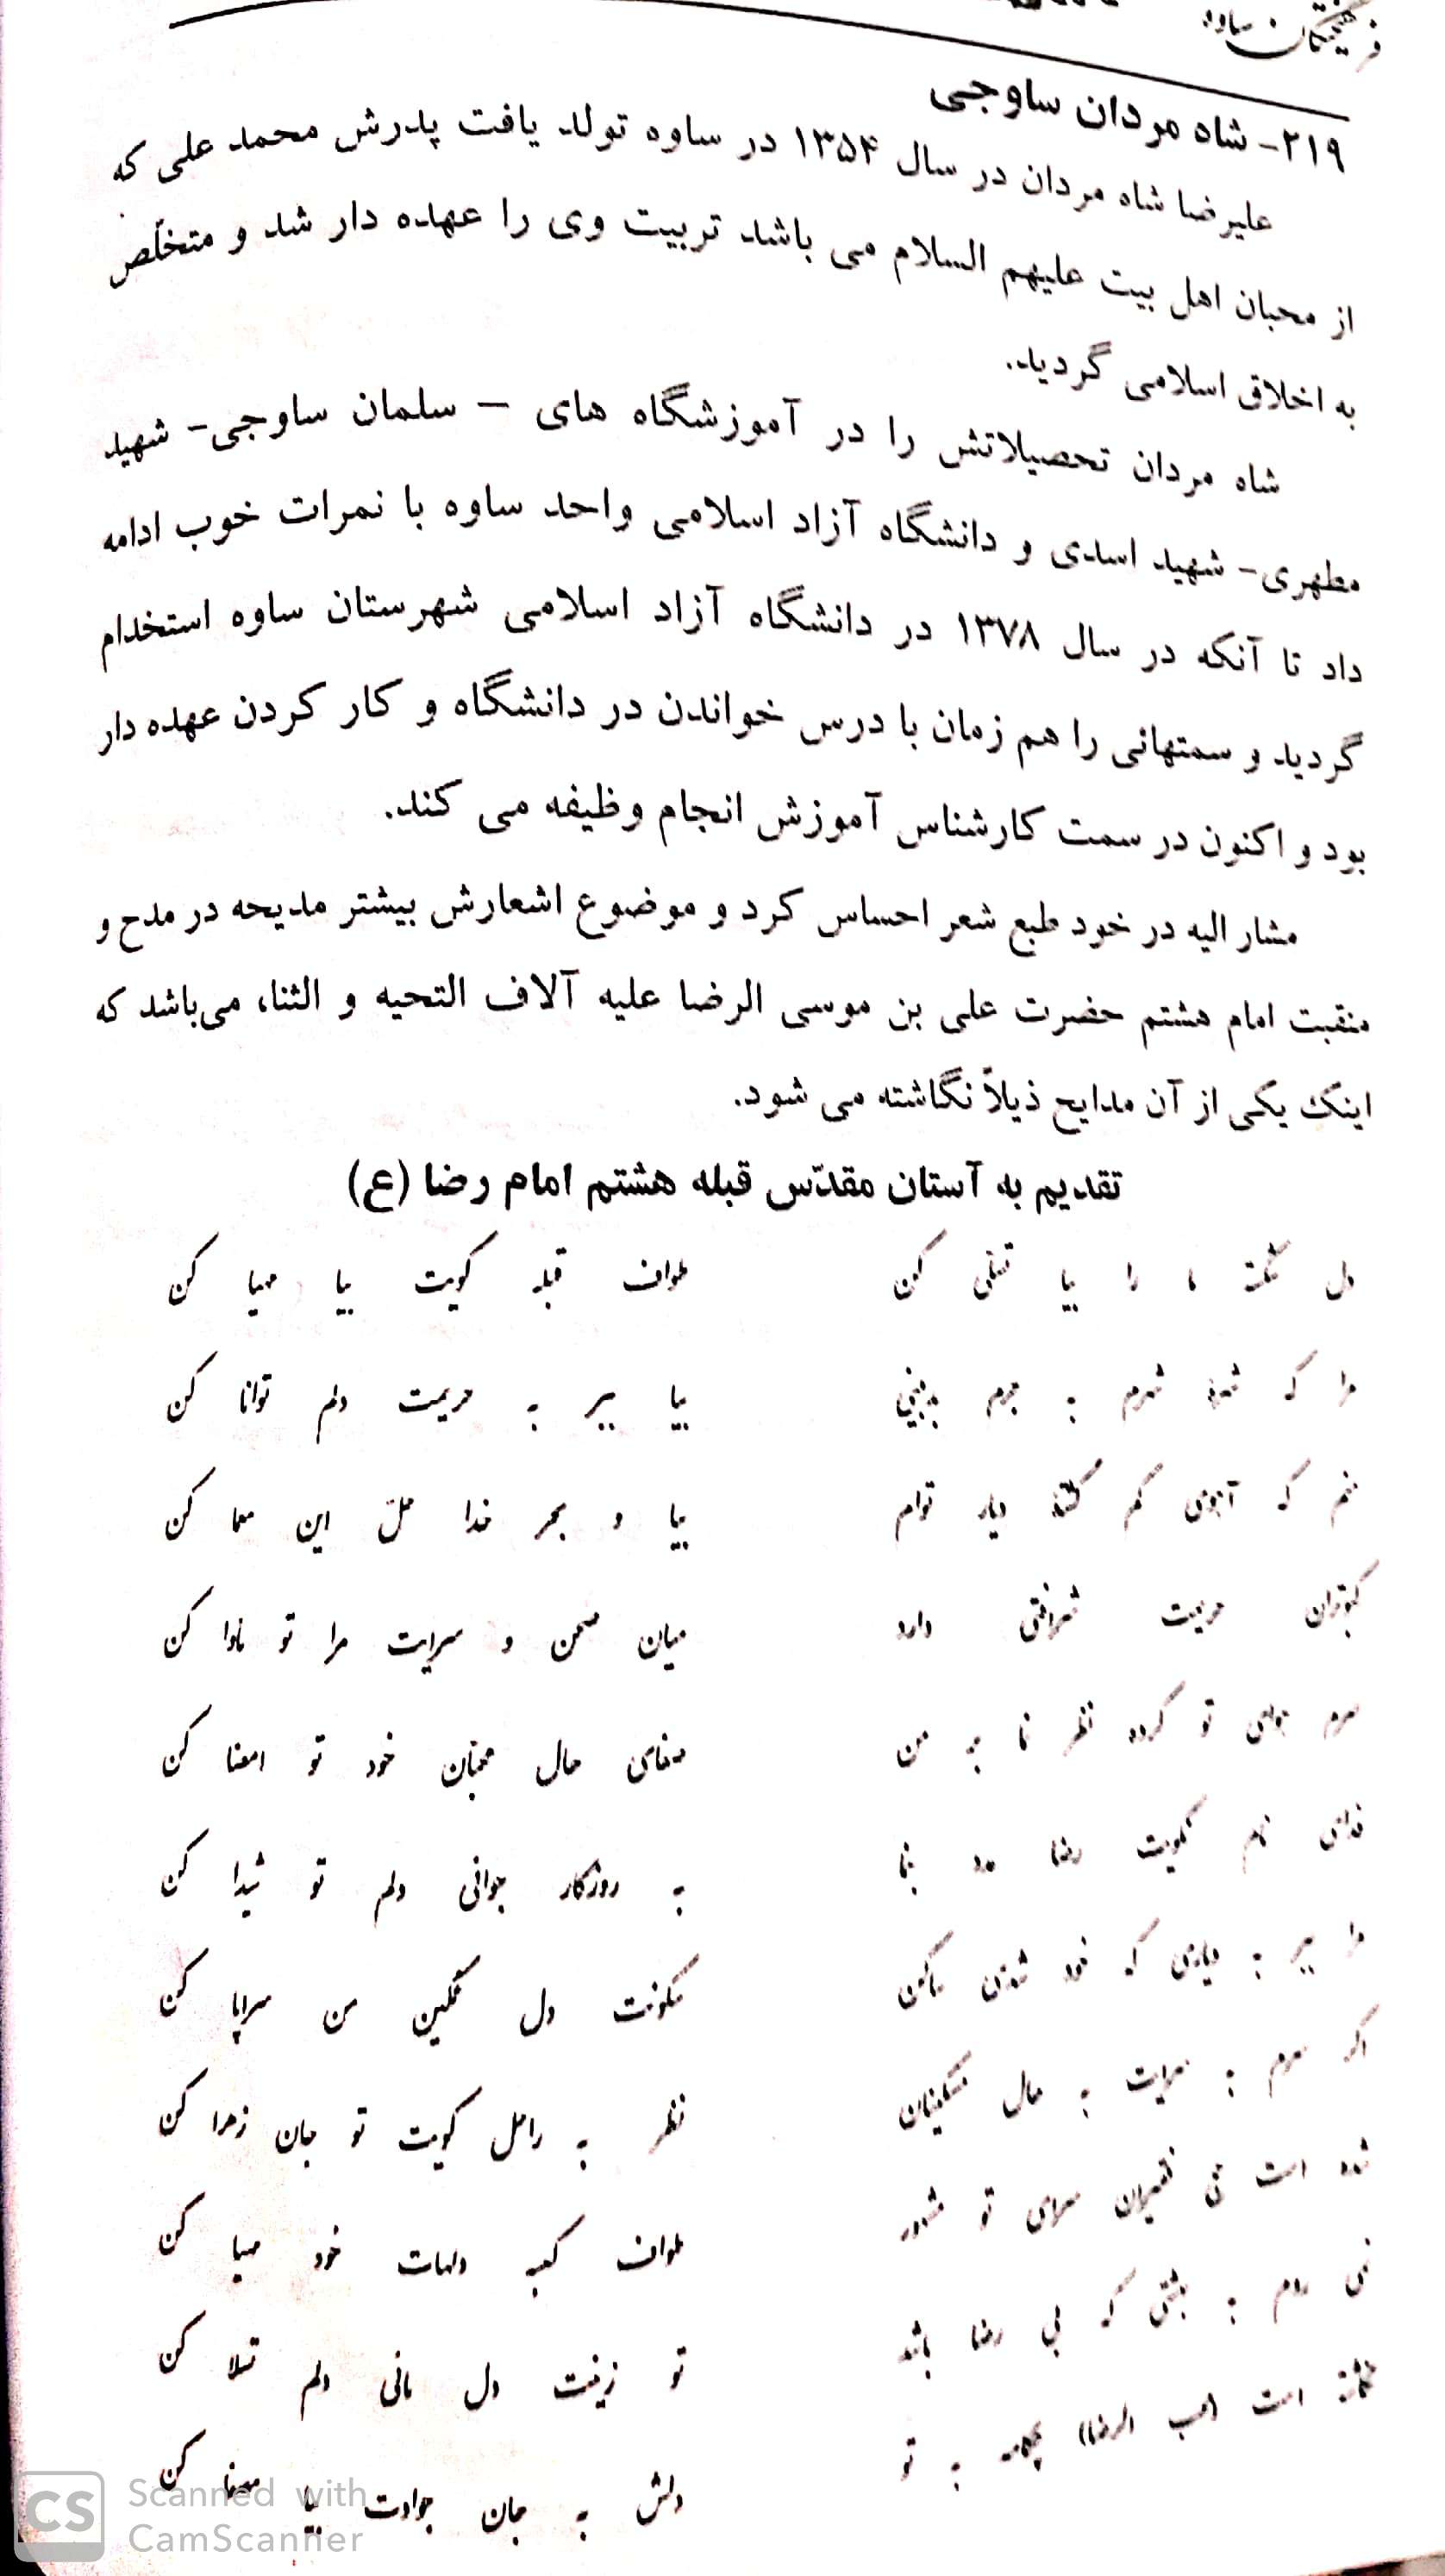 فرهیختگان ساوه
۲۱۹- شاه مردان ساوجی
علیرضا شاه مردان در سال ۱۳۵۴ در ساوه تولد یافت پدرش محمد علی که
از محبان اهل بیت علیهم السلام می باشد تربیت وی را عهده دار شد و متخلّص
به اخلاق اسلامی گردید.
شاه مردان تحصیلاتش را در آموزشگاه های – سلمان ساوجی- شهید
مطهری- شهید اسدی و دانشگاه آزاد اسلامی واحد ساوه با نمرات خوب ادامه
داد تا آنکه در سال ۱۳۷۸ در دانشگاه آزاد اسلامی شهرستان ساوه استخدام
گردید و سمتهائی را هم زمان با درس خواندن در دانشگاه و کار کردن عهده دار
بود و اکنون در سمت کارشناس آموزش انجام وظیفه می کند.
مشار الیه در خود طبع شعر احساس کرد و موضوع اشعارش بیشتر مدیحه در مدح و
منقبت امام هشتم حضرت علی بن موسی الرضا علیه آلاف التحیه و الثناء می‌باشد که
اینک یکی از آن مدایح ذیلاً نگاشته می شود.
تقدیم به آستان مقدّس قبله هشتم امام رضا (ع)
دل شکسته ما را بیا تسلّی کن طواف قبله کویت بیا مهیا کن
مرا که شهره شهرم به جرم بدبینی بیا ببر به حریمت دلم توانا کن
منم که آهوی گم گشته دیار توام بیا و بهر خدا حلّ این معما کن
کبوتران حریمت شرافتی دارد میان صحن و سرایت مرا تو مأوا کن
سرم هوای تو کرده نظر نما به من صفای حال محبّان خود تو امضا کن
فدای نام نکویت رضا مدد بنما به روزگار جوانی دلم تو شیدا کن
مرا ببر به دیاری که خود شدی ساکن سکونت دل غمگین من سراپا کن
اگر سرم به سرایت به حال مسکینان نظر به راحل کویت تو جان زهرا کن
شده است فقیران سرای تو مشهور طواف کعبه دلهات خود مهیا کن
نمی روم به بهشتی که بی رضا باشد تو زینت دل مائی دلم تسلا کن
است (محب الرضا) چکامه به تو دلش به جان جوادت بیا مصفا کن
CS Scanned with
CamScanner